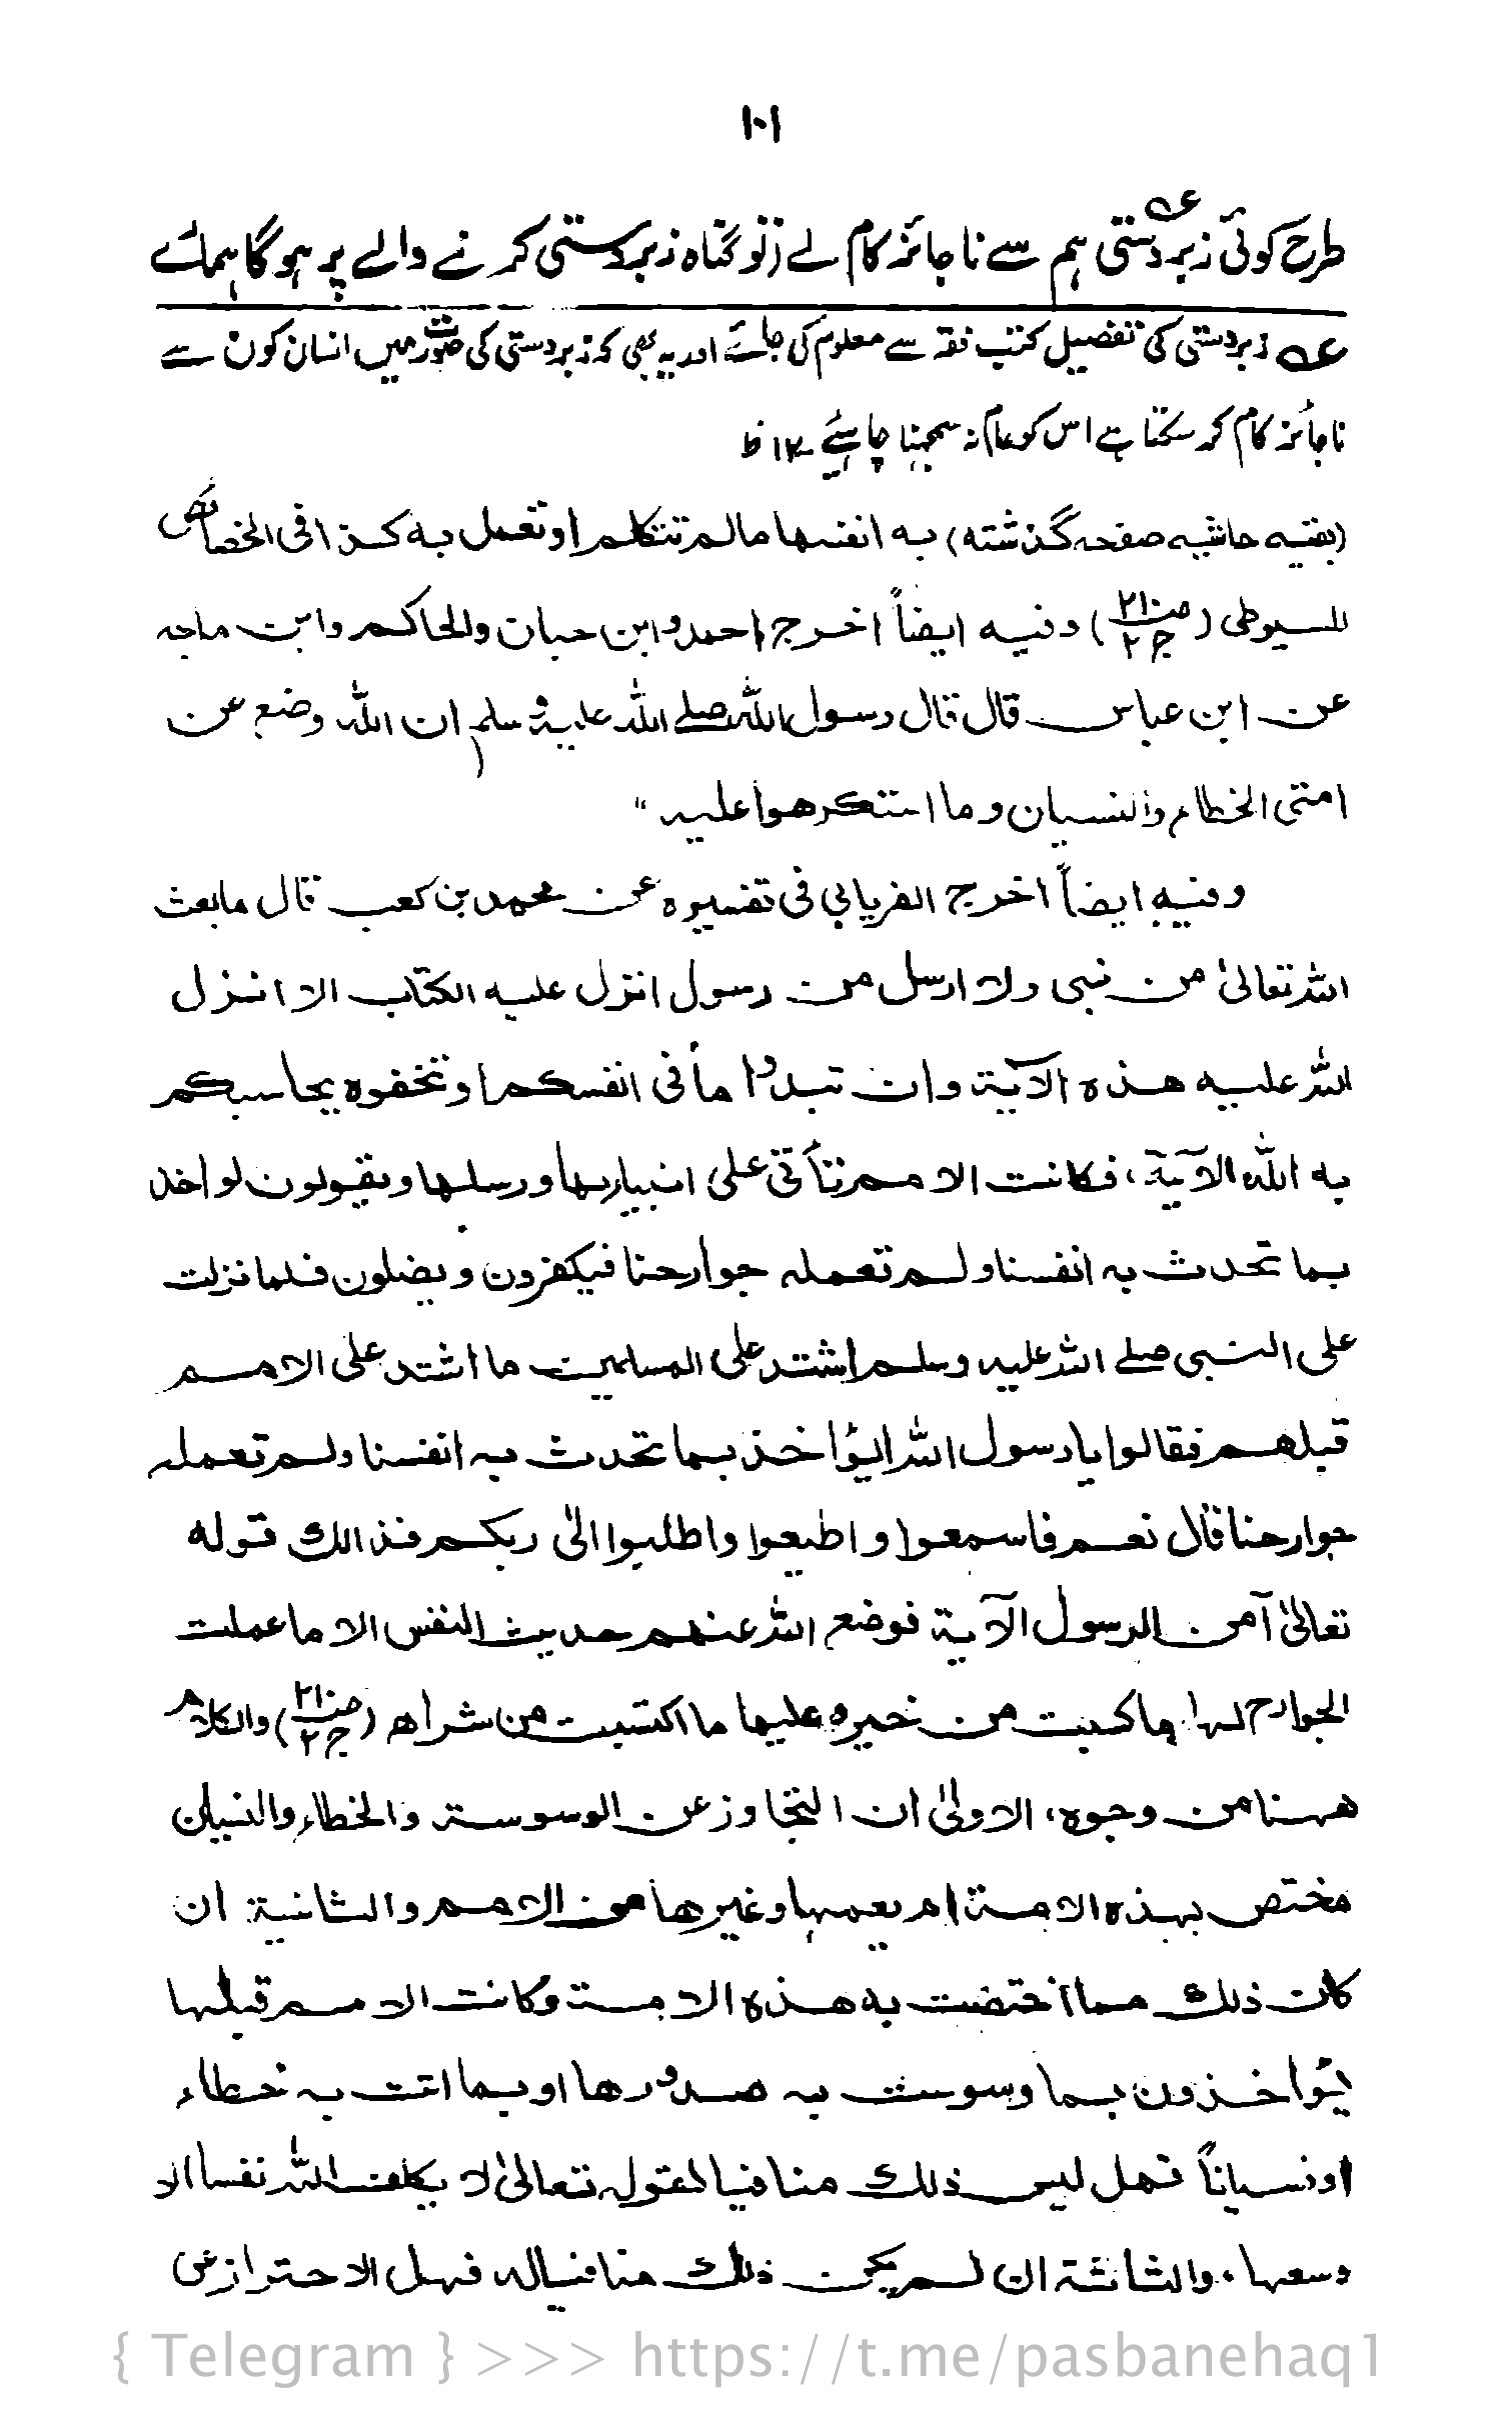 ۱۰۱
طرح کوئی زبردستی عہ ہم سے ناجائز کام لے تو گناہ زبردستی کرنے والے پر ہوگا ہمارے
عہ زبردستی کی تفصیل کتب فقہ سے معلوم کی جائے اور یہ بھی کہ زبردستی کی صورت میں انسان کون سے
ناجائز کام کر سکتا ہے اس کو عام نہ سمجھنا چاہیئے ۔۱۲ ظ
(بقیہ حاشیہ صفحہ گذشتہ) بہ انفسہا مالم تتکلم او تعمل بہ کذا فی الخصائص
للسیوطی (صـ۲۱۰ ج۲) وفیہ ایضاً اخرج احمد وابن حبان والحاکم وابن ماجہ
عن ابن عباس قال قال رسول اللہ صلے اللہ علیہ وسلم ان اللہ وضع عن
امتی الخطاء والنسیان وما استکرھوا علیہ "
وفیہ ایضاً اخرج الفریابی فی تفسیرہ عن محمد بن کعب قال ما بعث
اللہ تعالیٰ من نبی ولا ارسل من رسول انزل علیہ الکتاب الا انزل
اللہ علیہ ھذہ الآیۃ وان تبدوا ما فی انفسکم او تخفوہ یحاسبکم
بہ اللہ الآیۃ، فکانت الامم تأتی علی انبیاءہا ورسلہا ویقولون لو اخذ
بما تحدث بہ انفسنا ولم تعملہ جوارحنا فیکفرون ویضلون فلما نزلت
علی النبی صلے اللہ علیہ وسلم اشتد علی المسلمین ما اشتد علی الامم
قبلھم فقالوا یا رسول اللہ انؤاخذ بما تحدث بہ انفسنا ولم تعملہ
جوارحنا قال نعم فاسمعوا واطیعوا واطلبوا الیٰ ربکم فذالک قولہ
تعالیٰ آمن الرسول الآیۃ فوضع اللہ عنھم حدیث النفس الا ما عملت
الجوارح لہا ما کسبت من خیر وعلیہا ما اکتسبت من شر اھ (صـ۲۱۰ ج۲) والکلام
ھہنا من وجوہ، الاولیٰ ان التجاوز عن الوسوسۃ والخطاء والنسیان
مختص بہذہ الامۃ ام یعمہا وغیرھا من الامم والثانیۃ ان
کان ذلک مما اختصت بہ ھذہ الامۃ وکانت الامم قبلہا
یؤاخذون بما وسوست بہ صدورھا او بما اتت بہ خطاء
او نسیاناً فہل لیس ذلک منافیا لقولہ تعالیٰ لا یکلف اللہ نفسا الا
وسعہا، والثالثۃ ان لم یکن ذلک منافیا لہ فہل الاحتراز عن
{ Telegram } >>> https://t.me/pasbanehaq1